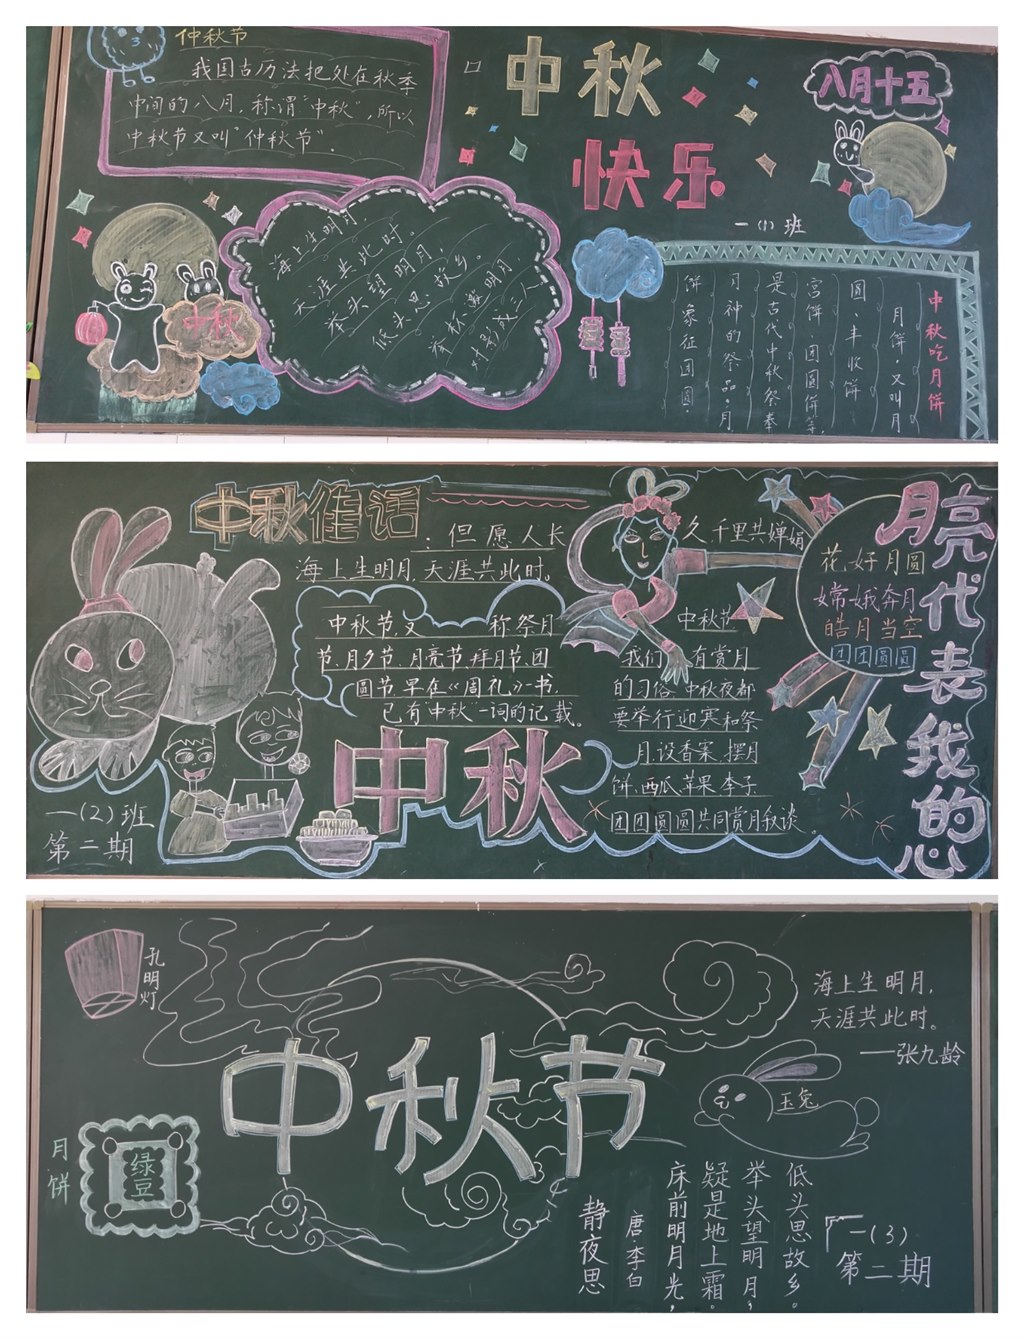 仲秋节
我国古历法把处在秋季
中间的八月，称谓“中秋”，所以
中秋节又叫“仲秋节”.
中秋
快乐
八月十五
一（1）班
海上生明月，
天涯共此时。
举头望明月，
低头思故乡。
明月
三人
中秋
中秋吃月饼
月饼，又叫月
圆、丰收饼
宫饼、团圆饼等，
是古代中秋祭奉
月神的祭品，月
饼象征团圆。
中秋佳话
：但愿人长
久 千里共婵娟
海上生明月，天涯共此时。
中秋节，又 称祭月
节、月夕节、月亮节、拜月节、团
圆节，早在《周礼》一书，
已有“中秋”一词的记载。
中秋节
我们 有赏月
的习俗 中秋夜都
要举行迎寒和祭
月，设香案，摆月
饼、西瓜 苹果 李子
团团圆圆共同赏月叙谈。
中秋
花好月圆
嫦娥奔月
皓月当空
团团圆圆
月亮代表我的心
一（2）班
第二期
孔明灯
中秋节
海上生明月，
天涯共此时。
——张九龄
玉兔
月饼
绿豆
静夜思
唐·李白
床前明月光，
疑是地上霜。
举头望明月，
低头思故乡。
一（3）
第二期